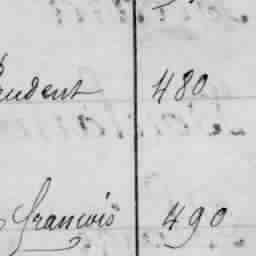 udent 480
françois 490